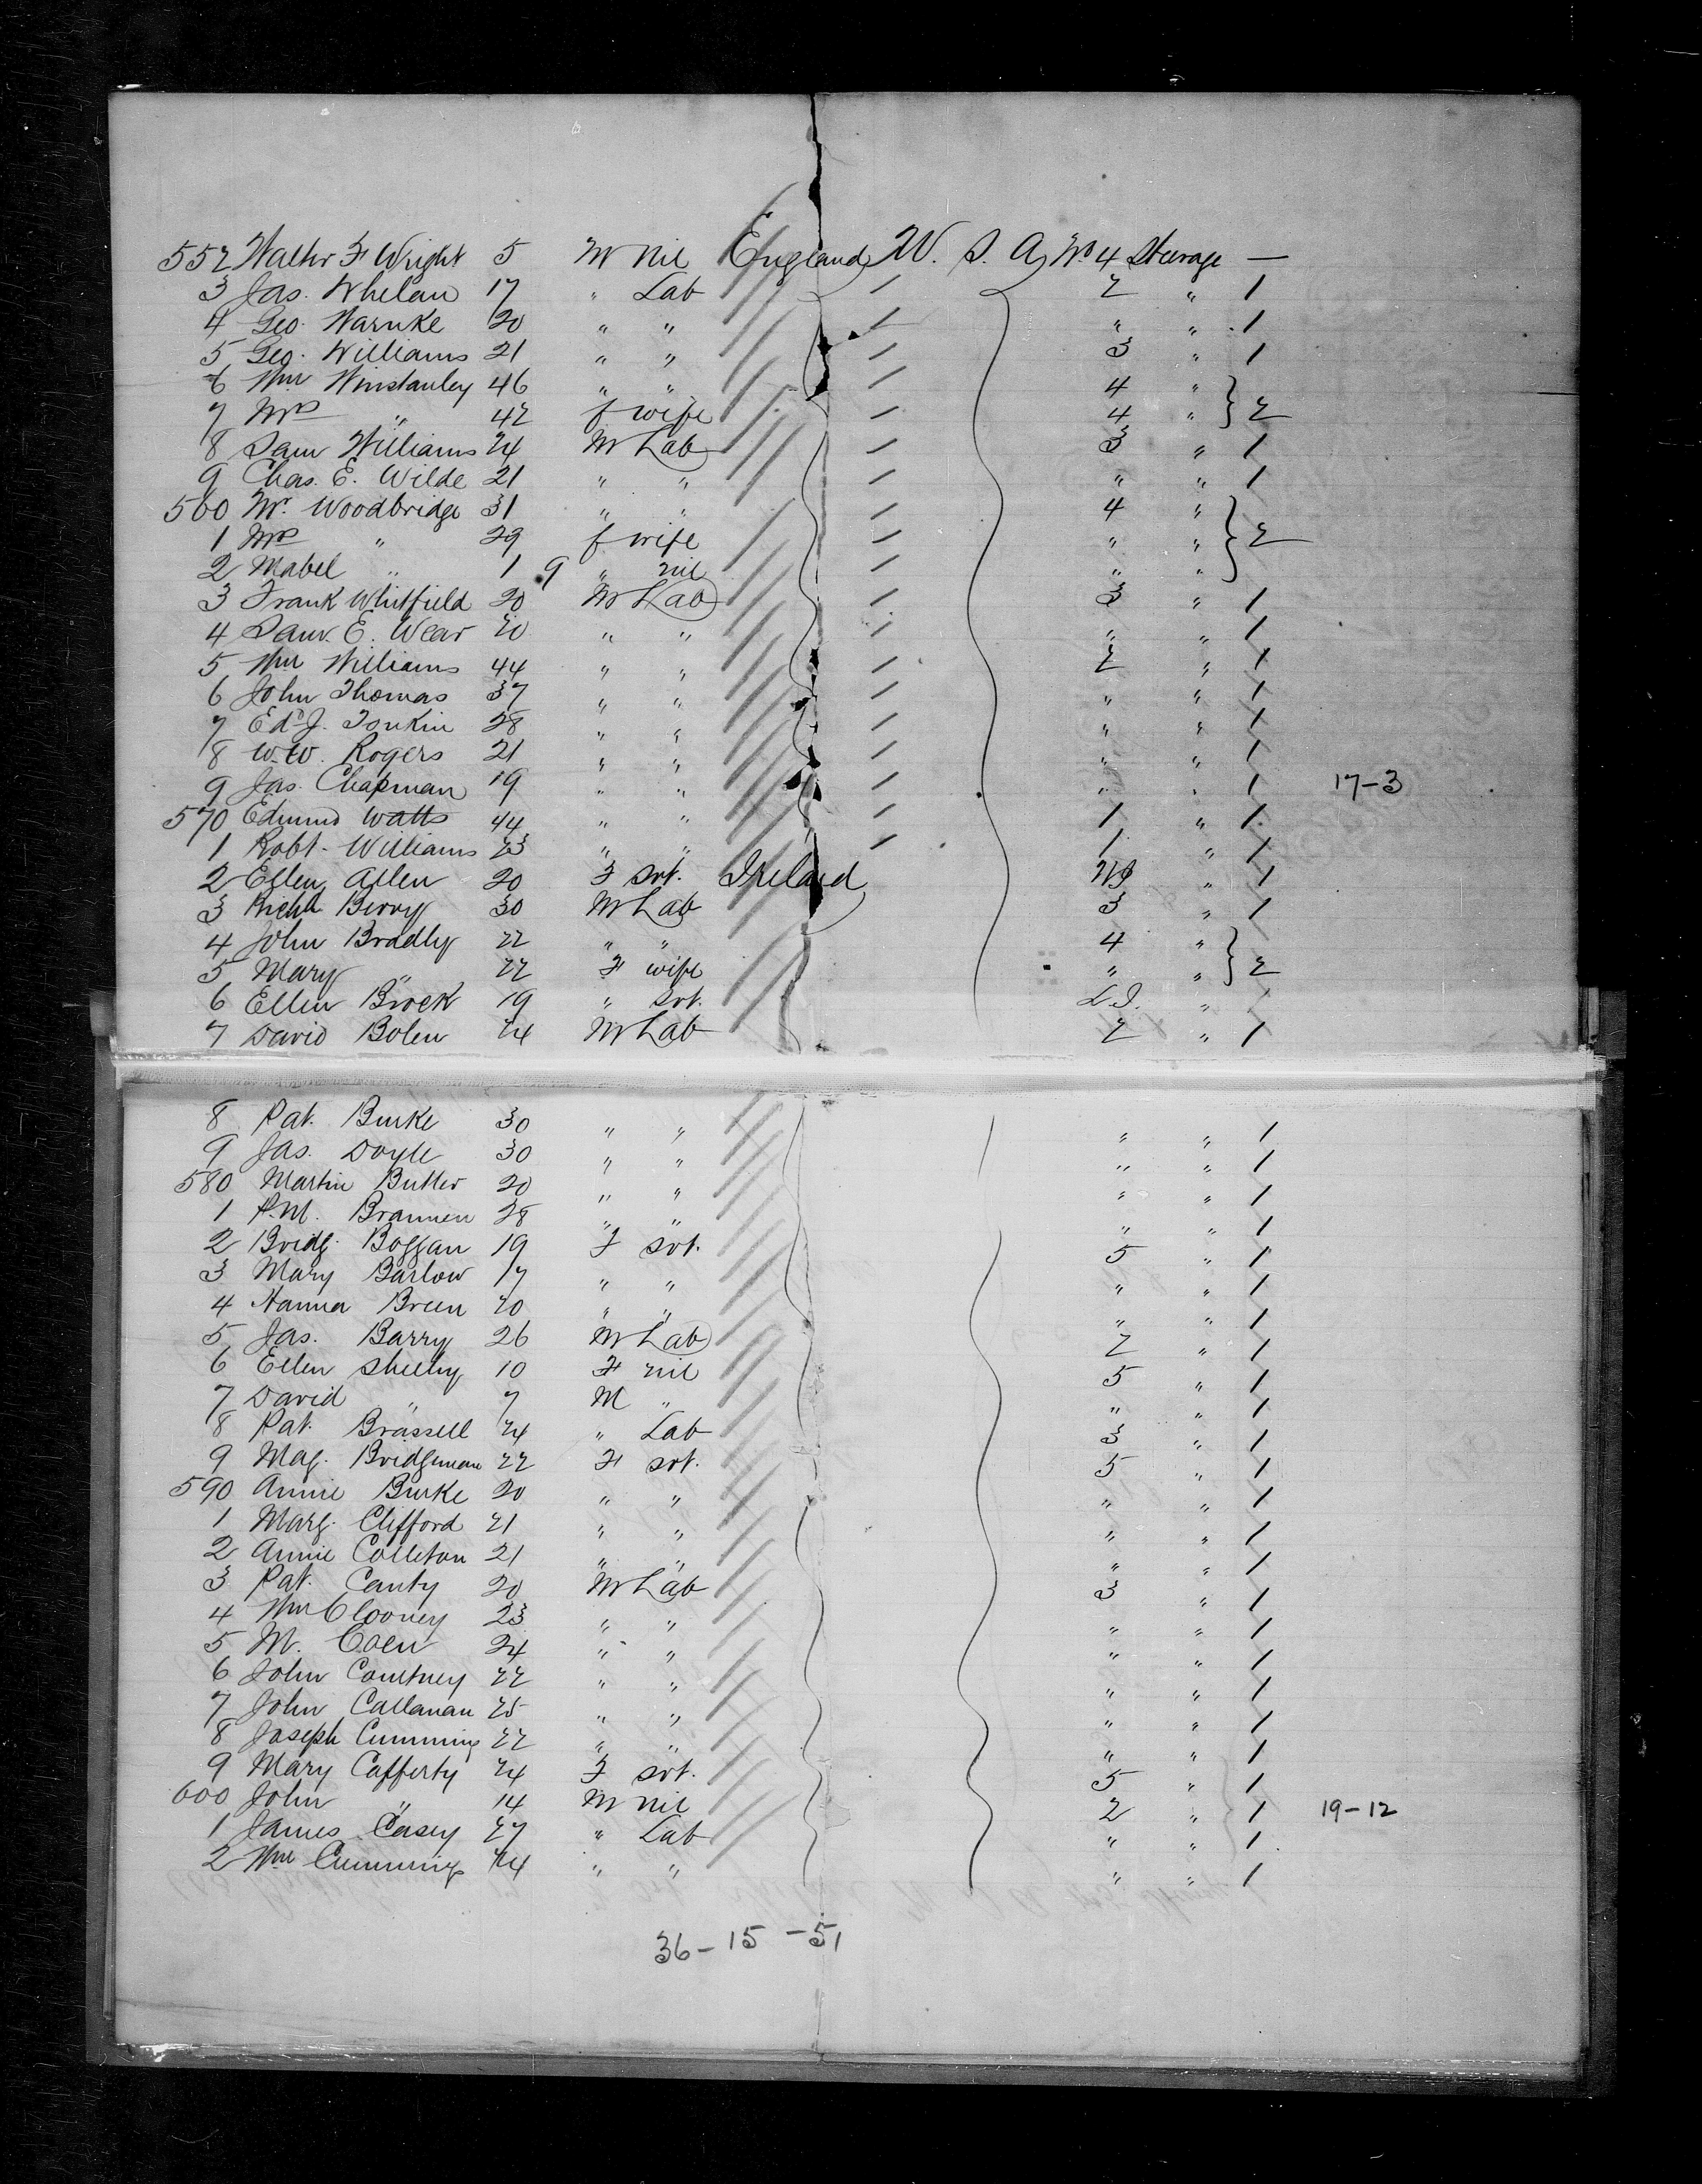 552 Walter F Wright 5 M Nil England U. S. A. No 4 Steerage —
3 Jas. Whelan 17 " Lab / 2 " 1
4 Geo. Warnke 20 " " / " " 1
5 Geo. Williams 21 " " / 3 " 1
6 Wm Winstanley 46 " " / 4 "
7 Mrs " 42 f wife / 4 " } 2
8 Sam Williams 24 M Lab / 3 " 1
9 Chas. E. Wilde 21 " " / " " 1
560 Mr. Woodbridge 31 " " / 4 "
1 Mrs " 29 f wife / " " } 2
2 Mabel " 1 9 " nil / " "
3 Frank Whitfield 20 M Lab / 3 " 1
4 Saml. E. Wear 20 " " / " " 1
5 Wm Williams 44 " " / 2 " 1
6 John Thomas 37 " " / " " 1
7 Ed. J. Tonkin 28 " " / " " 1
8 W.W. Rogers 21 " " / " " 1
9 Jas. Chapman 19 " " / " " 1 17-3
570 Edmund Watts 44 " " / 1 " 1
1 Robt. Williams 23 " " / 1 " 1
2 Ellen Allen 20 F Svt. Ireland " 1
3 Richd Berry 30 M Lab 3 " 1
4 John Bradly 22 " " 4 "
5 Mary " 22 F wife " " } 2
6 Ellen Brock 19 " svt. " 1
7 David Bolen 24 M Lab 2 " 1
8 Pat. Burke 30 " " " " 1
9 Jas. Doyle 30 " " " " 1
580 Martin Butler 20 " " " " 1
1 P.M. Brannen 28 " " " " 1
2 Bridg. Boggan 19 F svt. 5 " 1
3 Mary Barlow 17 " " " " 1
4 Hanna Breen 20 " " " " 1
5 Jas. Barry 26 M Lab 2 " 1
6 Ellen Sheehy 10 F nil 5 " 1
7 David " 7 M " " " 1
8 Pat. Brassell 24 " Lab 3 " 1
9 Mag. Bridgeman 22 F svt. 5 " 1
590 Annie Burke 20 " " " " 1
1 Marg. Clifford 21 " " " " 1
2 Annie Colleton 21 " " " " 1
3 Pat. Canty 20 M Lab 3 " 1
4 Wm Clooney 23 " " " " 1
5 M. Coen 24 " " " " 1
6 John Courtney 22 " " " " 1
7 John Callanan 25 " " " " 1
8 Joseph Cumming 22 " " " " 1
9 Mary Cafferty 24 F svt. 5 " 1
600 John " 14 M nil 2 " 1 19-12
1 James Casey 27 " Lab " " 1
2 Wm Cumming 24 " " " " 1
36-15-51